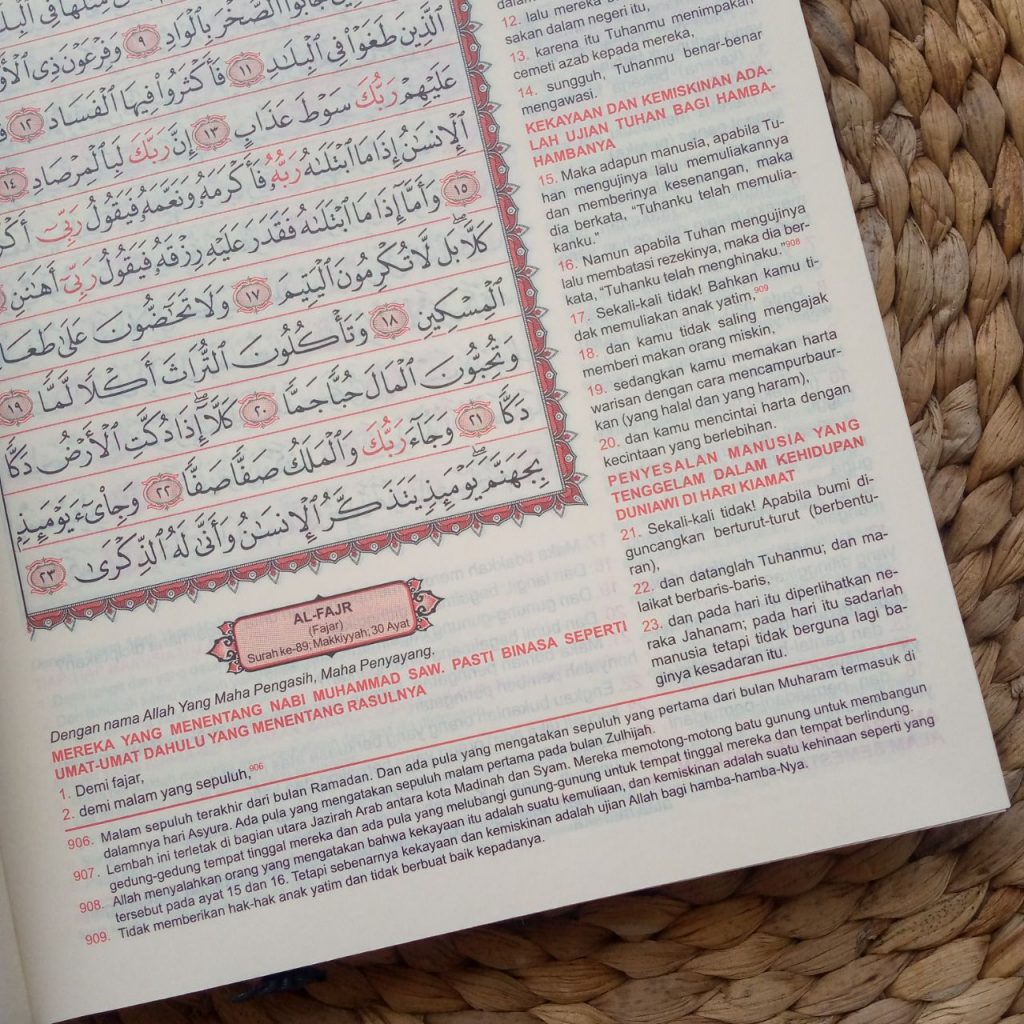 مِثْلُهَا فِى
جَابُوا۟ ٱلصَّخْرَ بِٱلْوَادِ ٩ وَفِرْعَوْنَ ذِى
ٱلَّذِينَ طَغَوْا۟ فِى ٱلْبِلَٰدِ ١١ فَأَكْثَرُوا۟ فِيهَا ٱلْفَسَادَ ١٢
عَلَيْهِمْ رَبُّكَ سَوْطَ عَذَابٍ ١٣ إِنَّ رَبَّكَ لَبِٱلْمِرْصَادِ ١٤
ٱلْإِنسَٰنُ إِذَا مَا ٱبْتَلَىٰهُ رَبُّهُۥ فَأَكْرَمَهُۥ وَنَعَّمَهُۥ فَيَقُولُ رَبِّىٓ
١٥ وَأَمَّآ إِذَا مَا ٱبْتَلَىٰهُ فَقَدَرَ عَلَيْهِ رِزْقَهُۥ فَيَقُولُ رَبِّىٓ أَهَٰنَنِ
كَلَّا ۖ بَل لَّا تُكْرِمُونَ ٱلْيَتِيمَ ١٧ وَلَا تَحَٰٓضُّونَ عَلَىٰ طَعَا
ٱلْمِسْكِينِ ١٨ وَتَأْكُلُونَ ٱلتُّرَاثَ أَكْلًا لَّمًّا ١٩
وَتُحِبُّونَ ٱلْمَالَ حُبًّا جَمًّا ٢٠ كَلَّآ ۖ إِذَا دُكَّتِ ٱلْأَرْضُ دَكًّا
دَكًّا ٢١ وَجَآءَ رَبُّكَ وَٱلْمَلَكُ صَفًّا صَفًّا ٢٢ وَجِا۟ىٓءَ يَوْمَئِذٍۭ
بِجَهَنَّمَ ۚ يَوْمَئِذٍ يَتَذَكَّرُ ٱلْإِنسَٰنُ وَأَنَّىٰ لَهُ ٱلذِّكْرَىٰ ٢٣
AL-FAJR
(Fajar)
Surah ke-89; Makkiyyah; 30 Ayat
Dengan nama Allah Yang Maha Pengasih, Maha Penyayang.
MEREKA YANG MENENTANG NABI MUHAMMAD SAW. PASTI BINASA SEPERTI
UMAT-UMAT DAHULU YANG MENENTANG RASULNYA
1. Demi fajar,
2. demi malam yang sepuluh,906
12. lalu mereka
sakan dalam negeri itu,
13. karena itu Tuhanmu menimpakan
cemeti azab kepada mereka,
14. sungguh, Tuhanmu benar-benar
mengawasi.
KEKAYAAN DAN KEMISKINAN ADA-
LAH UJIAN TUHAN BAGI HAMBA-
HAMBANYA
15. Maka adapun manusia, apabila Tu-
han mengujinya lalu memuliakannya
dan memberinya kesenangan, maka
dia berkata, “Tuhanku telah memulia-
kanku.”
16. Namun apabila Tuhan mengujinya
lalu membatasi rezekinya, maka dia ber-
kata, “Tuhanku telah menghinaku.”908
17. Sekali-kali tidak! Bahkan kamu ti-
dak memuliakan anak yatim,909
18. dan kamu tidak saling mengajak
memberi makan orang miskin,
19. sedangkan kamu memakan harta
warisan dengan cara mencampurbaur-
kan (yang halal dan yang haram),
20. dan kamu mencintai harta dengan
kecintaan yang berlebihan.
PENYESALAN MANUSIA YANG
TENGGELAM DALAM KEHIDUPAN
DUNIAWI DI HARI KIAMAT
21. Sekali-kali tidak! Apabila bumi di-
guncangkan berturut-turut (berbentu-
ran),
22. dan datanglah Tuhanmu; dan ma-
laikat berbaris-baris,
23. dan pada hari itu diperlihatkan ne-
raka Jahanam; pada hari itu sadarlah
manusia tetapi tidak berguna lagi ba-
ginya kesadaran itu.
906. Malam sepuluh terakhir dari bulan Ramadan. Dan ada pula yang mengatakan sepuluh yang pertama dari bulan Muharam termasuk di
dalamnya hari Asyura. Ada pula yang mengatakan sepuluh malam pertama pada bulan Zulhijah.
907. Lembah ini terletak di bagian utara Jazirah Arab antara kota Madinah dan Syam. Mereka memotong-motong batu gunung untuk membangun
gedung-gedung tempat tinggal mereka dan ada pula yang melubangi gunung-gunung untuk tempat tinggal mereka dan tempat berlindung.
908. Allah menyalahkan orang yang mengatakan bahwa kekayaan itu adalah suatu kemuliaan, dan kemiskinan adalah suatu kehinaan seperti yang
tersebut pada ayat 15 dan 16. Tetapi sebenarnya kekayaan dan kemiskinan adalah ujian Allah bagi hamba-hamba-Nya.
909. Tidak memberikan hak-hak anak yatim dan tidak berbuat baik kepadanya.